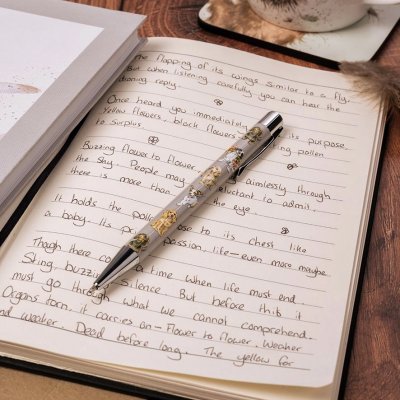 The flapping of its wings similar to a fly.
But when listening carefully you can hear the
droning reply.
Once heard you immediately its purpose.
Yellow flowers, black flowers pollen
to surplus.
Buzzing flower to flower aimlessly through
the sky. People may reluctant to admit,
there is more than the eye.
It holds the pollen close to its chest like
a baby. Its pr passion, life - even more maybe.
Though there comes a time when life must end
Sting buzzing silence. But before this it
must go through what we cannot comprehend.
Organs torn, it carries on - Flower to flower. Weaker
and weaker. Dead before long. The yellow for